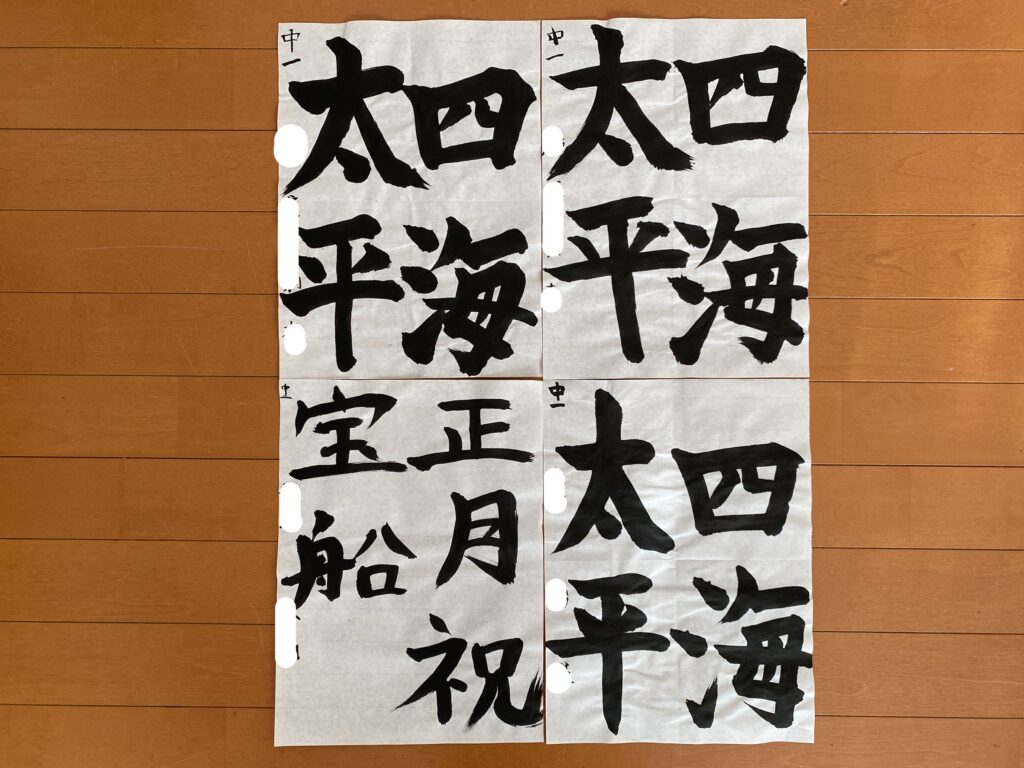 四海
太平
中一
四海
太平
中一
四海
太平
中一
正月祝
宝船